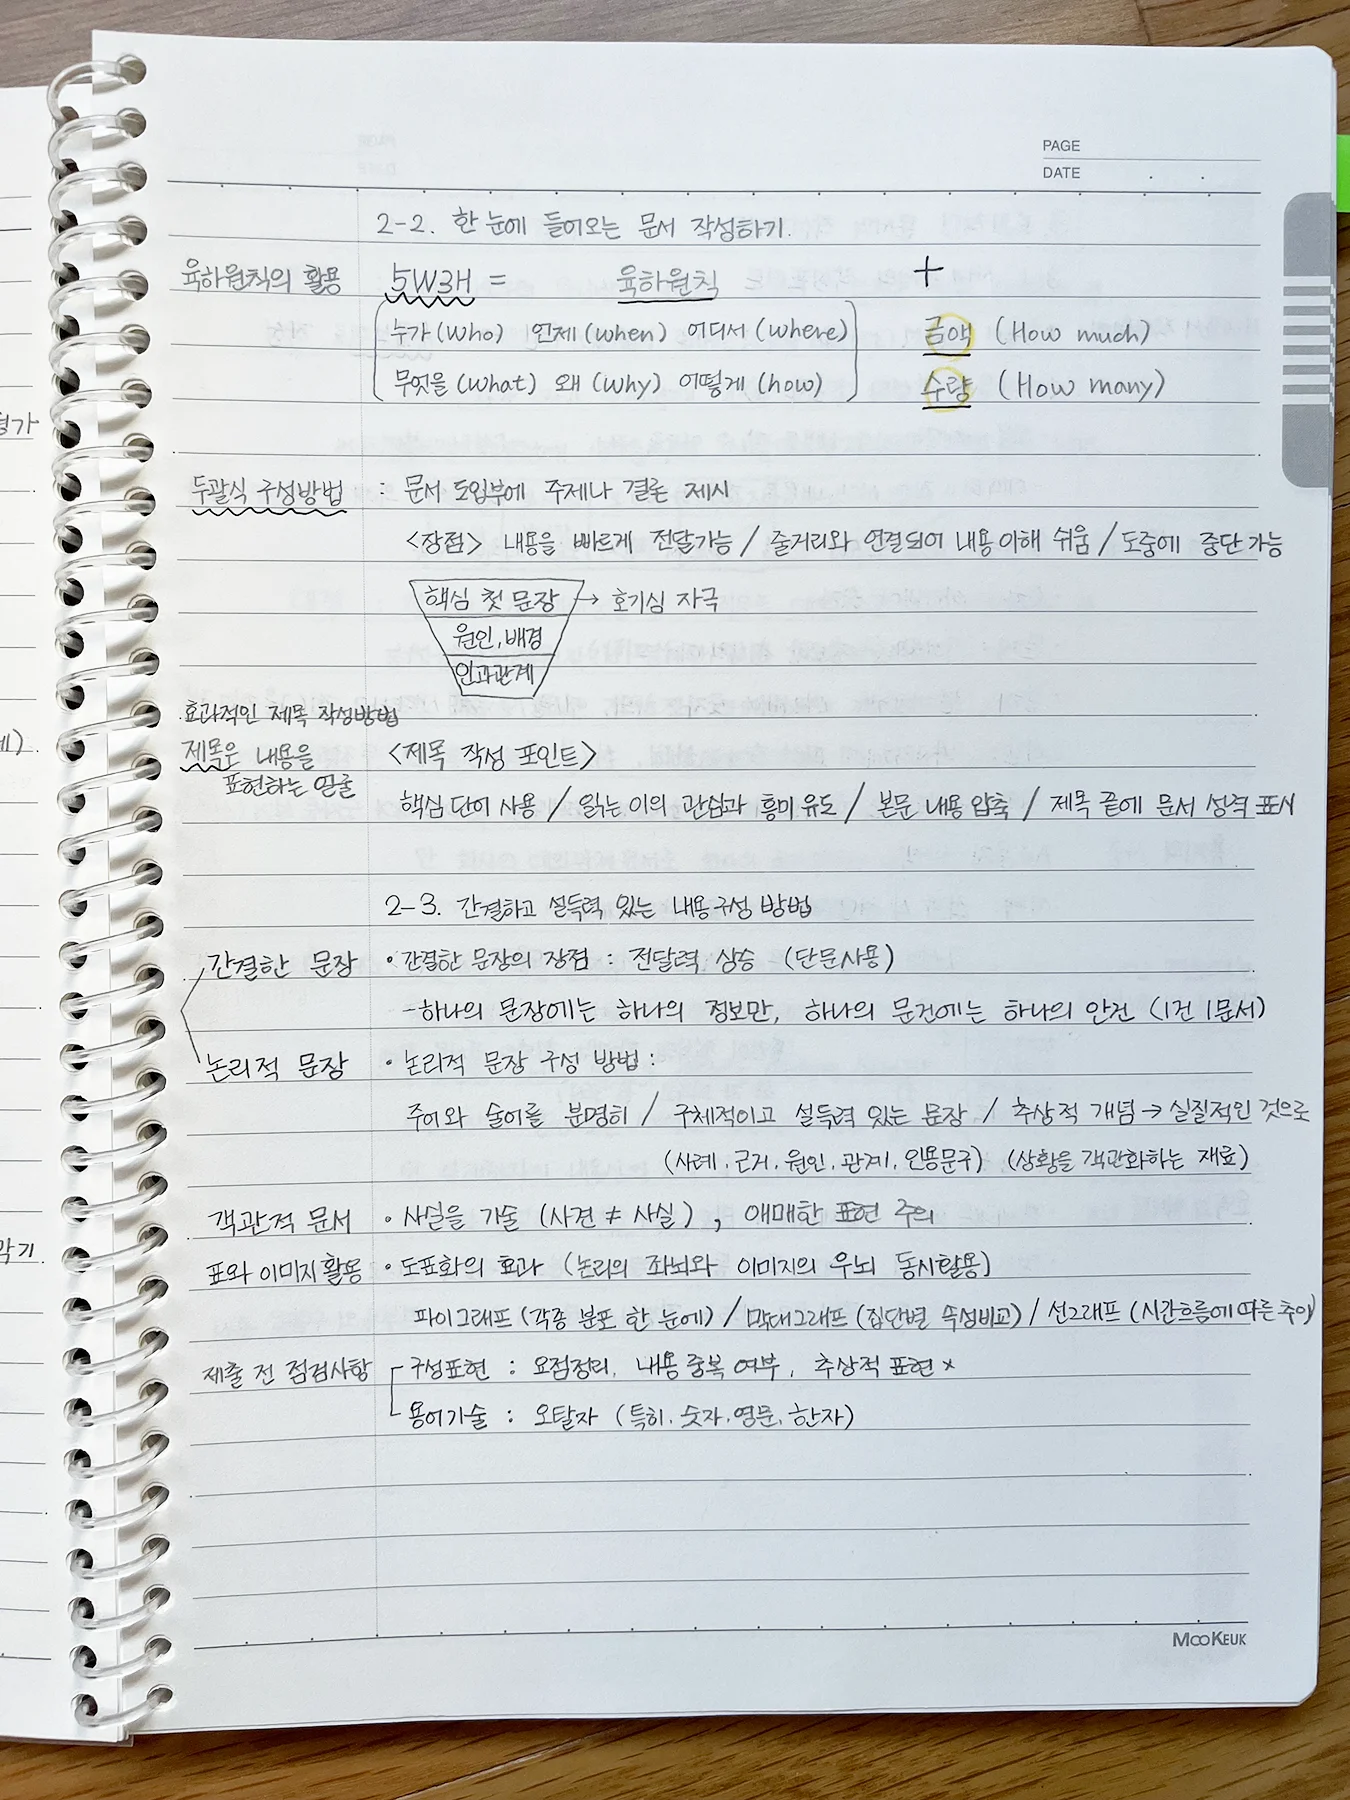 PAGE
DATE
2-2. 한눈에 들어오는 문서 작성하기.
육하원칙의 활용 5W3H = 육하원칙 +
누가 (Who) 언제 (when) 어디서 (where) 금액 (How much)
무엇을 (what) 왜 (why) 어떻게 (how) 수량 (How many)
두괄식 구성방법 : 문서 도입부에 주제나 결론 제시
<장점> 내용을 빠르게 전달가능 / 줄거리와 연결되어 내용이해 쉬움 / 도중에 중단가능
핵심 첫 문장 → 호기심 자극
원인, 배경
인과관계
효과적인 제목 작성방법
제목은 내용을 <제목 작성 포인트>
표현하는 얼굴
핵심단어 사용 / 읽는 이의 관심과 흥미유도 / 본문 내용 압축 / 제목 끝에 문서 성격 표시
2-3. 간결하고 설득력 있는 내용구성 방법
간결한 문장 • 간결한 문장의 장점 : 전달력 상승 (단문사용)
- 하나의 문장에는 하나의 정보만, 하나의 문건에는 하나의 안건 (1건 1문서)
논리적 문장 • 논리적 문장 구성 방법 :
주어와 술어를 분명히 / 구체적이고 설득력 있는 문장 / 추상적 개념 → 실질적인 것으로
(사례, 근거, 원인, 관계, 인용문구) (상황을 객관화하는 재료)
객관적 문서 • 사실을 기술 (사건 ≠ 사실), 애매한 표현 주의
표와 이미지 활용 • 도표화의 효과 (논리의 좌뇌와 이미지의 우뇌 동시활용)
파이그래프 (각종 분포 한 눈에) / 막대그래프 (집단별 속성비교) / 선그래프 (시간흐름에 따른 추이)
제출 전 점검사항 구성표현 : 요점정리, 내용 중복 여부, 추상적 표현 ×
용어기술 : 오탈자 (특히, 숫자, 영문, 한자)
MOOKEUK